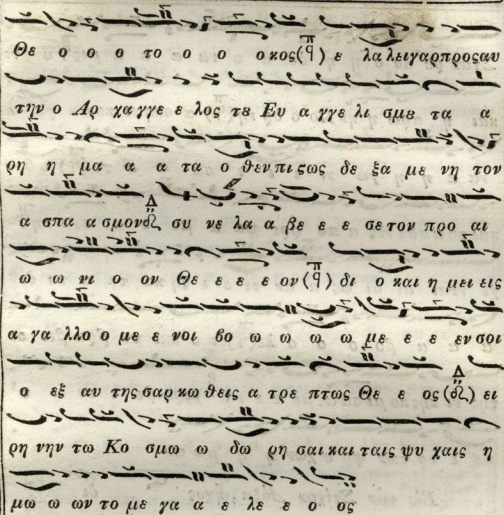 Θε ο ο ο το ο ο ο κος (π ϥ) ε λα λει γαρ προς αυ
την ο Αρ χα γγε ε λος τȣ Ευ α γγε λι σμȣ τα α
ρη η μα α α τα ο θεν πι ϛως δε ξα με νη τον
α σπα α σμον Δ συ νε λα α βε ε ε σε τον προ αι
ω ω νι ο ον Θε ε ε ε ον (π ϥ) δι ο και η μει εις
α γα λλο ο με ε νοι βο ω ω ω ω ω με ε ε εν σοι
ο εξ αυ της σαρ κω θεις α τρε πτως Θε ε ος (Δ) ει
ρη νην τω Κο σμω ω δω ρη σαι και ταις ψυ χαις η
μω ω ων το με γα α ε λε ε ο ος